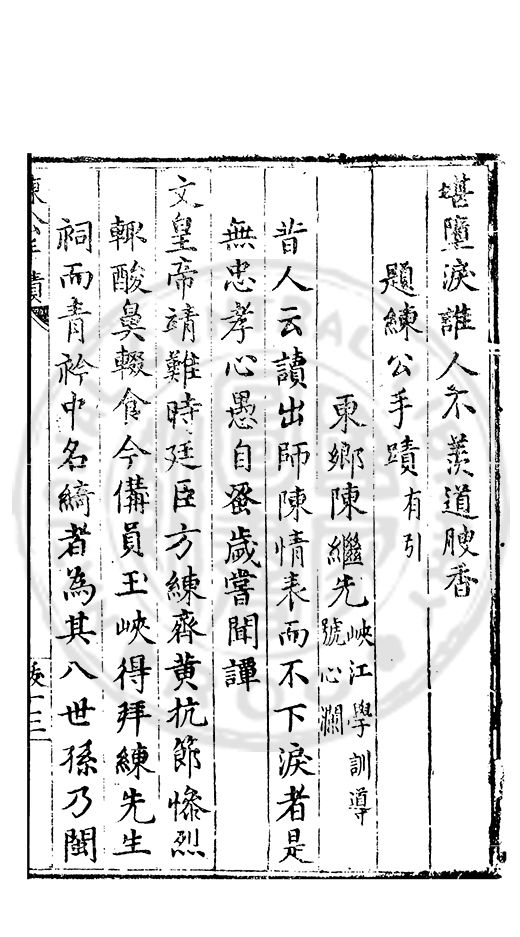 堪墮淚誰人不羨道腴香
題練公手蹟有引
東鄉陳繼先峽江學訓導號心瀾
昔人云讀出師陳情表而不下淚者是
無忠孝心愚自蚤歲嘗聞譚
文皇帝靖難時廷臣方練齊黃抗節慘烈
輒酸鼻輟食今備員玉峽得拜練先生
祠而青衿中名綺者為其八世孫乃閩
練公手蹟